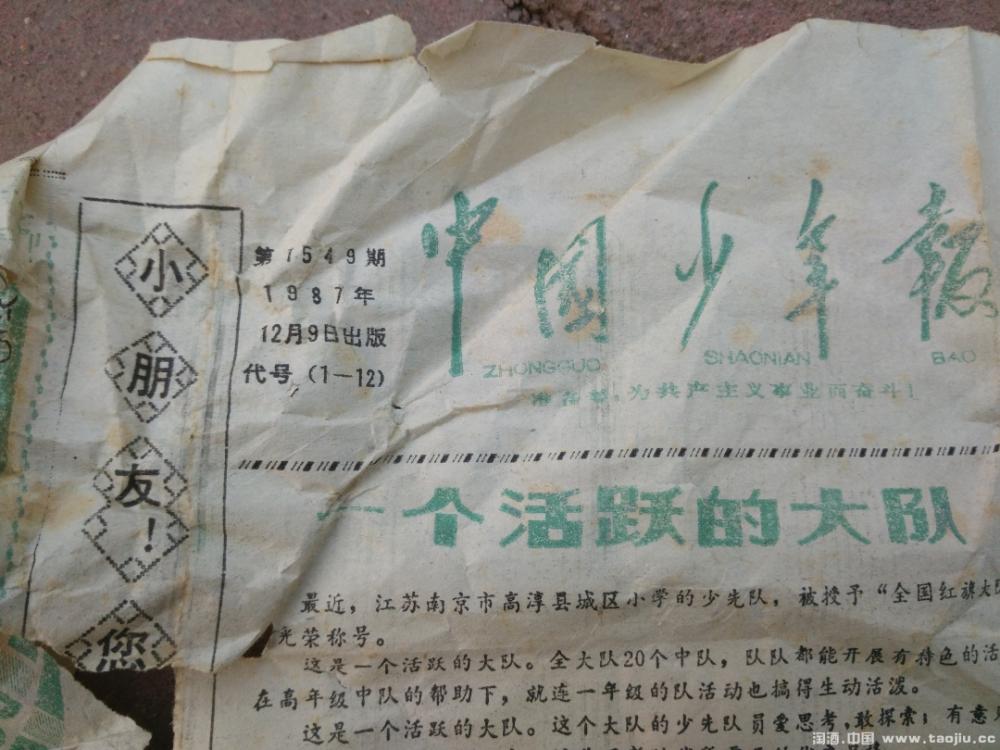 小朋友！您
第1549期
1987年
12月9日出版
代号（1—12）
中国少年报
ZHONGGUO SHAONIAN BAO
准备着，为共产主义事业而奋斗！
一个活跃的大队
最近，江苏南京市高淳县城区小学的少先队，被授予“全国红旗大队
光荣称号。
这是一个活跃的大队。全大队20个中队，队队都能开展有特色的活
在高年级中队的帮助下，就连一年级的队活动也搞得生动活泼。
这是一个活跃的大队。这个大队的少先队员爱思考，敢探索；有意
淘酒.中国 www.taojiu.cc